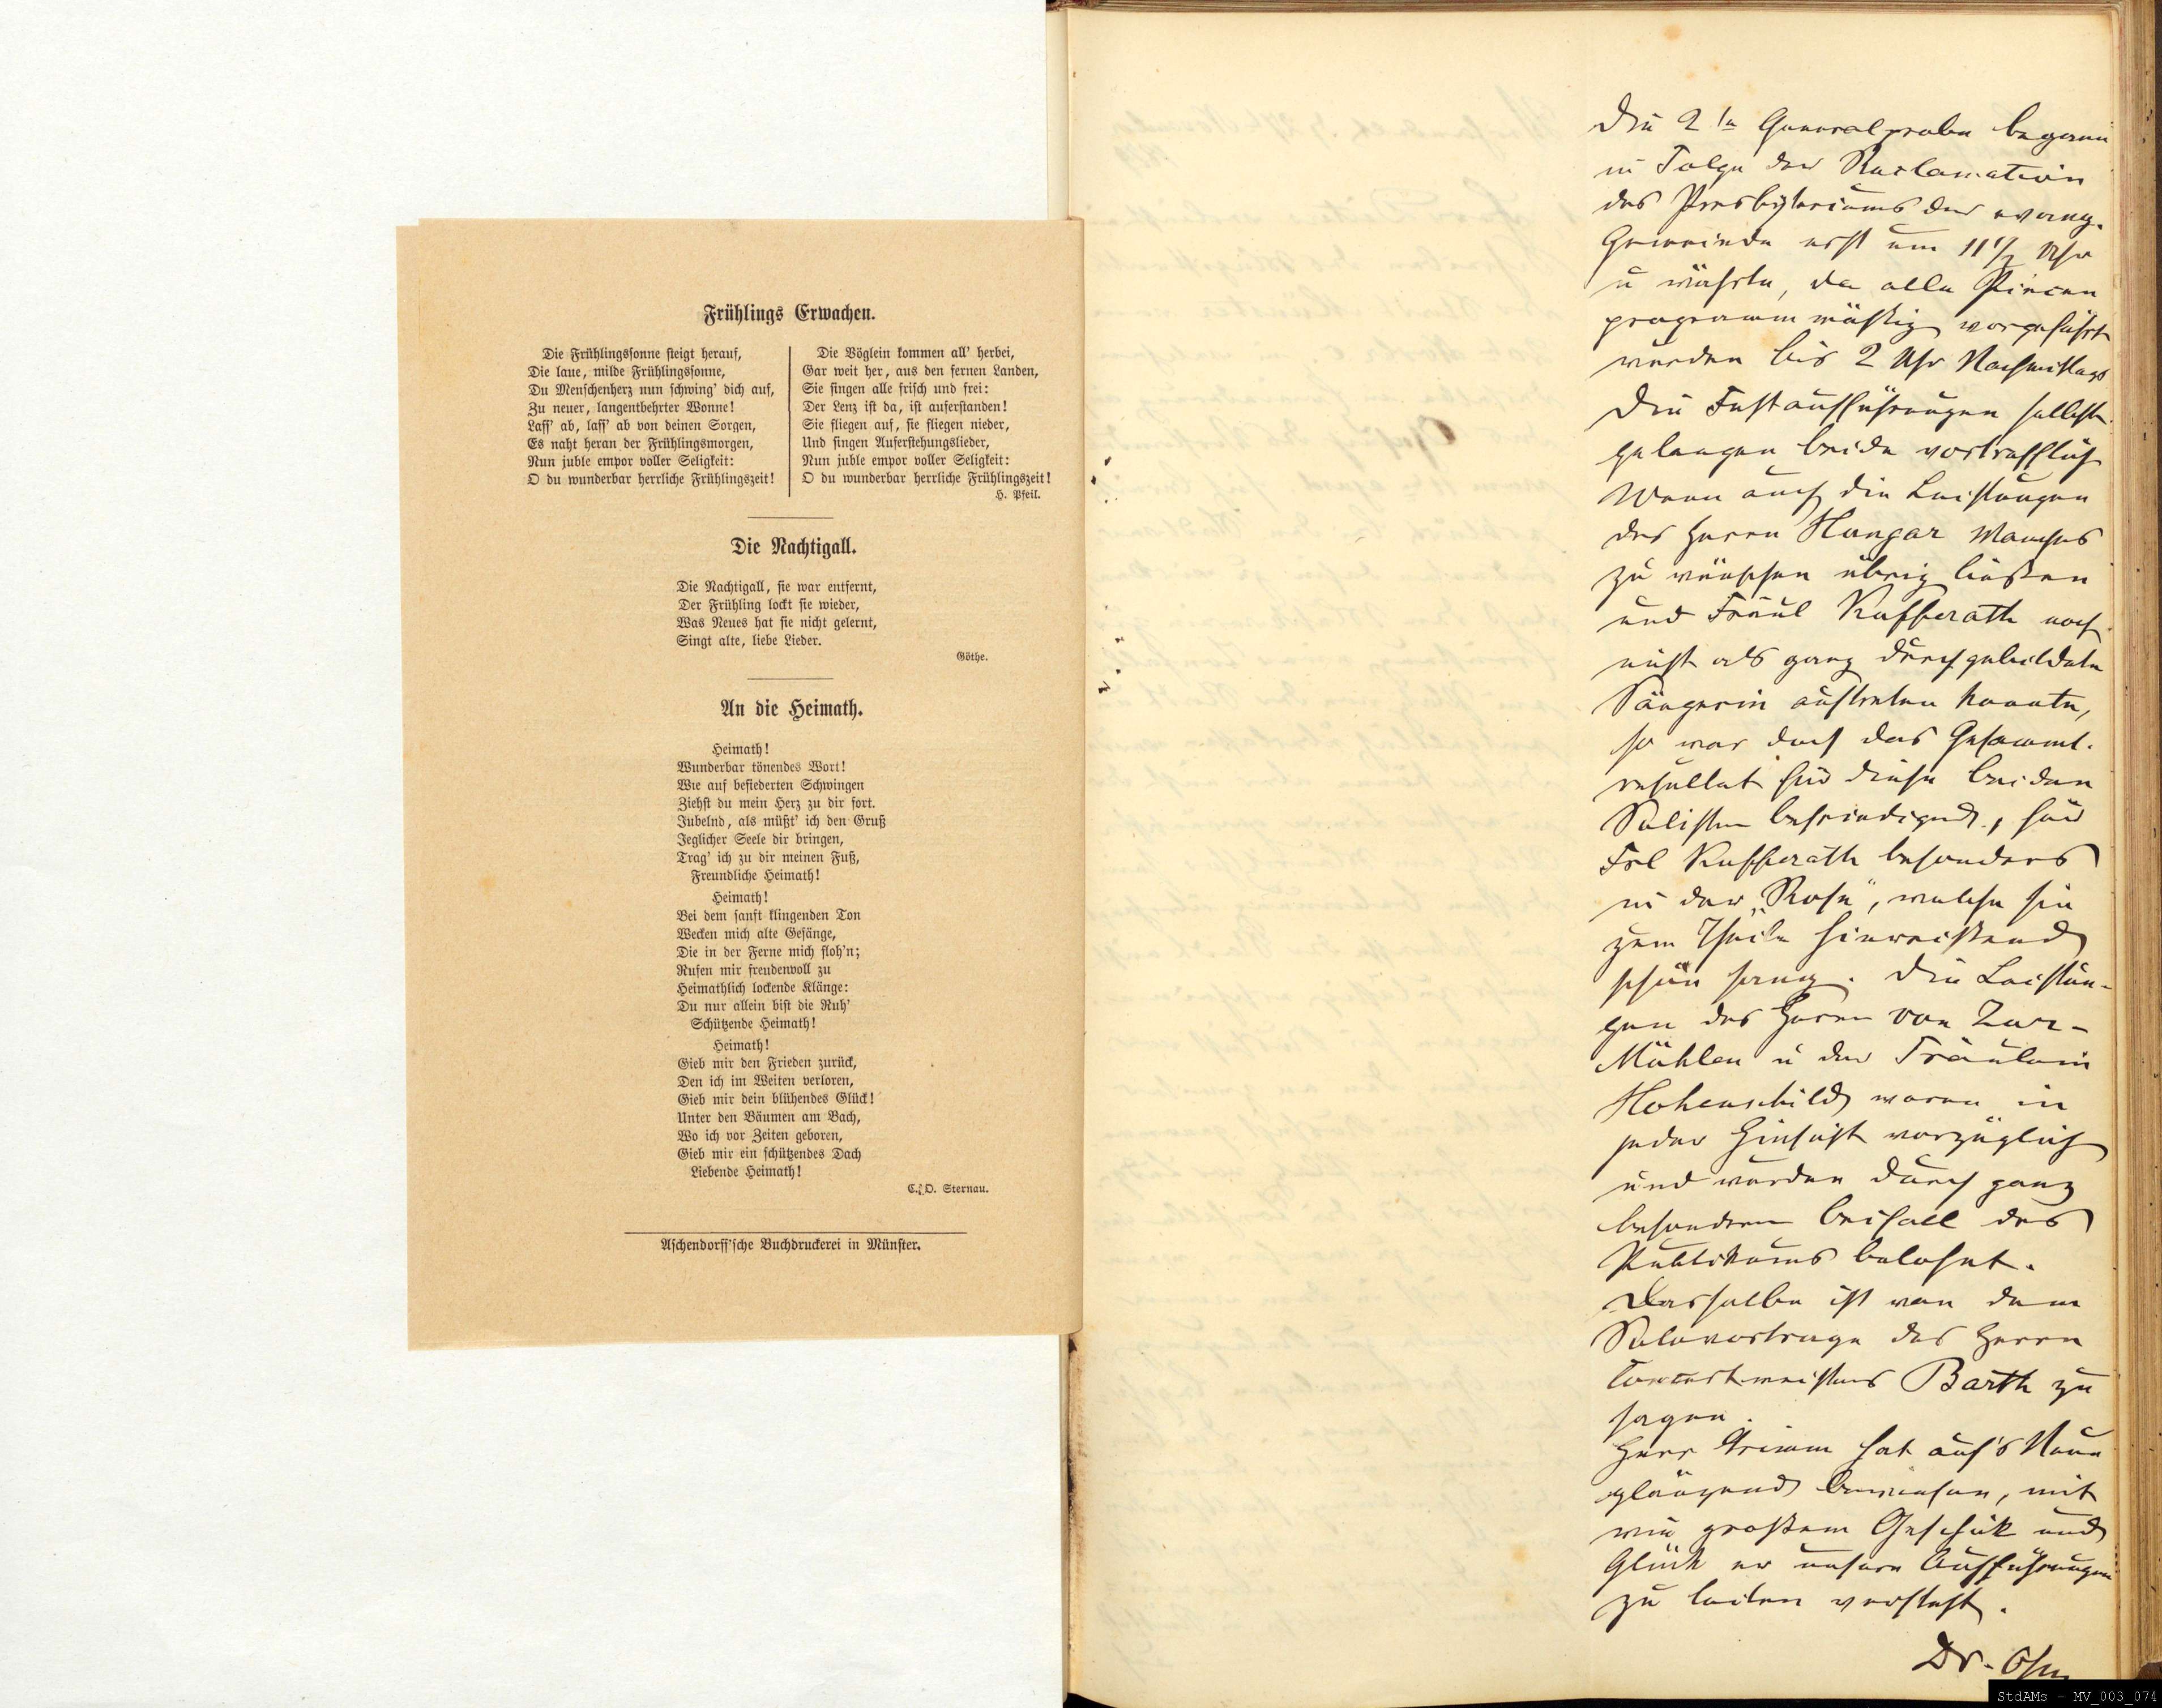 Frühlings Erwachen.
Die Frühlingssonne steigt herauf,
Die laue, milde Frühlingssonne,
Du Menschenherz nun schwing' dich auf,
Zu neuer, langentbehrter Wonne!
Lass' ab, lass' ab von deinen Sorgen,
Es naht heran der Frühlingsmorgen,
Nun juble empor voller Seligkeit:
O du wunderbar herrliche Frühlingszeit!
Die Vöglein kommen all' herbei,
Gar weit her, aus den fernen Landen,
Sie singen alle frisch und frei:
Der Lenz ist da, ist auferstanden!
Sie fliegen auf, sie fliegen nieder,
Und singen Auferstehungslieder,
Nun juble empor voller Seligkeit:
O du wunderbar herrliche Frühlingszeit!
H. Pfeil.
Die Nachtigall.
Die Nachtigall, sie war entfernt,
Der Frühling lockt sie wieder,
Was Neues hat sie nicht gelernt,
Singt alte, liebe Lieder.
Göthe.
An die Heimath.
Heimath!
Wunderbar tönendes Wort!
Wie auf befiederten Schwingen
Ziehst du mein Herz zu dir fort.
Jubelnd, als müßt' ich den Gruß
Jeglicher Seele dir bringen,
Trag' ich zu dir meinen Fuß,
Freundliche Heimath!
Heimath!
Bei dem sanft klingenden Ton
Wecken mich alte Gesänge,
Die in der Ferne mich floh'n;
Rufen mir freudenvoll zu
Heimathlich lockende Klänge:
Du nur allein bist die Ruh'
Schützende Heimath!
Heimath!
Gieb mir den Frieden zurück,
Den ich im Weiten verloren,
Gieb mir dein blühendes Glück!
Unter den Bäumen am Bach,
Wo ich vor Zeiten geboren,
Gieb mir ein schützendes Dach
Liebende Heimath!
C. O. Sternau.
Aschendorff'sche Buchdruckerei in Münster.
Die 2te Generalprobe begann
in Folge der Reclamation
des Presbyteriums der evang.
Gemeinde erst um 11½ Uhr
u währte, da alle Piecen
programmmäßig vorgeführt
wurden bis 2 Uhr Nachmittags
Die Festaufführungen selbst
gelangen beide vortrefflich
Wenn auch die Leistungen
des Herrn Hungar Manches
zu wünschen übrig ließen
und Fräul Kufferath noch
nicht als ganz durchgebildete
Sängerin auftreten konnte,
so war doch das Gesammt-
resultat für diese beiden
Solisten befriedigend, für
Frl Kufferath besonders
in der „Rose", welche sie
zum Theile hinreißend
schön sang. Die Leistun-
gen des Herrn von Zur-
Mühlen u der Fräulein
Hohenschild waren in
jeder Hinsicht vorzüglich
und wurden durch ganz
besonderen Beifall des
Publikums belohnt.
Dasselbe ist von dem
Solovortrage des Herrn
Concertmeisters Barth zu
sagen.
Herr Grimm hat auf's Neue
glänzend bewiesen, mit
wie großem Geschick und
Glück er unsere Aufführungen
zu leiten versteht.
Dr.
StdAMs - MV_003_074